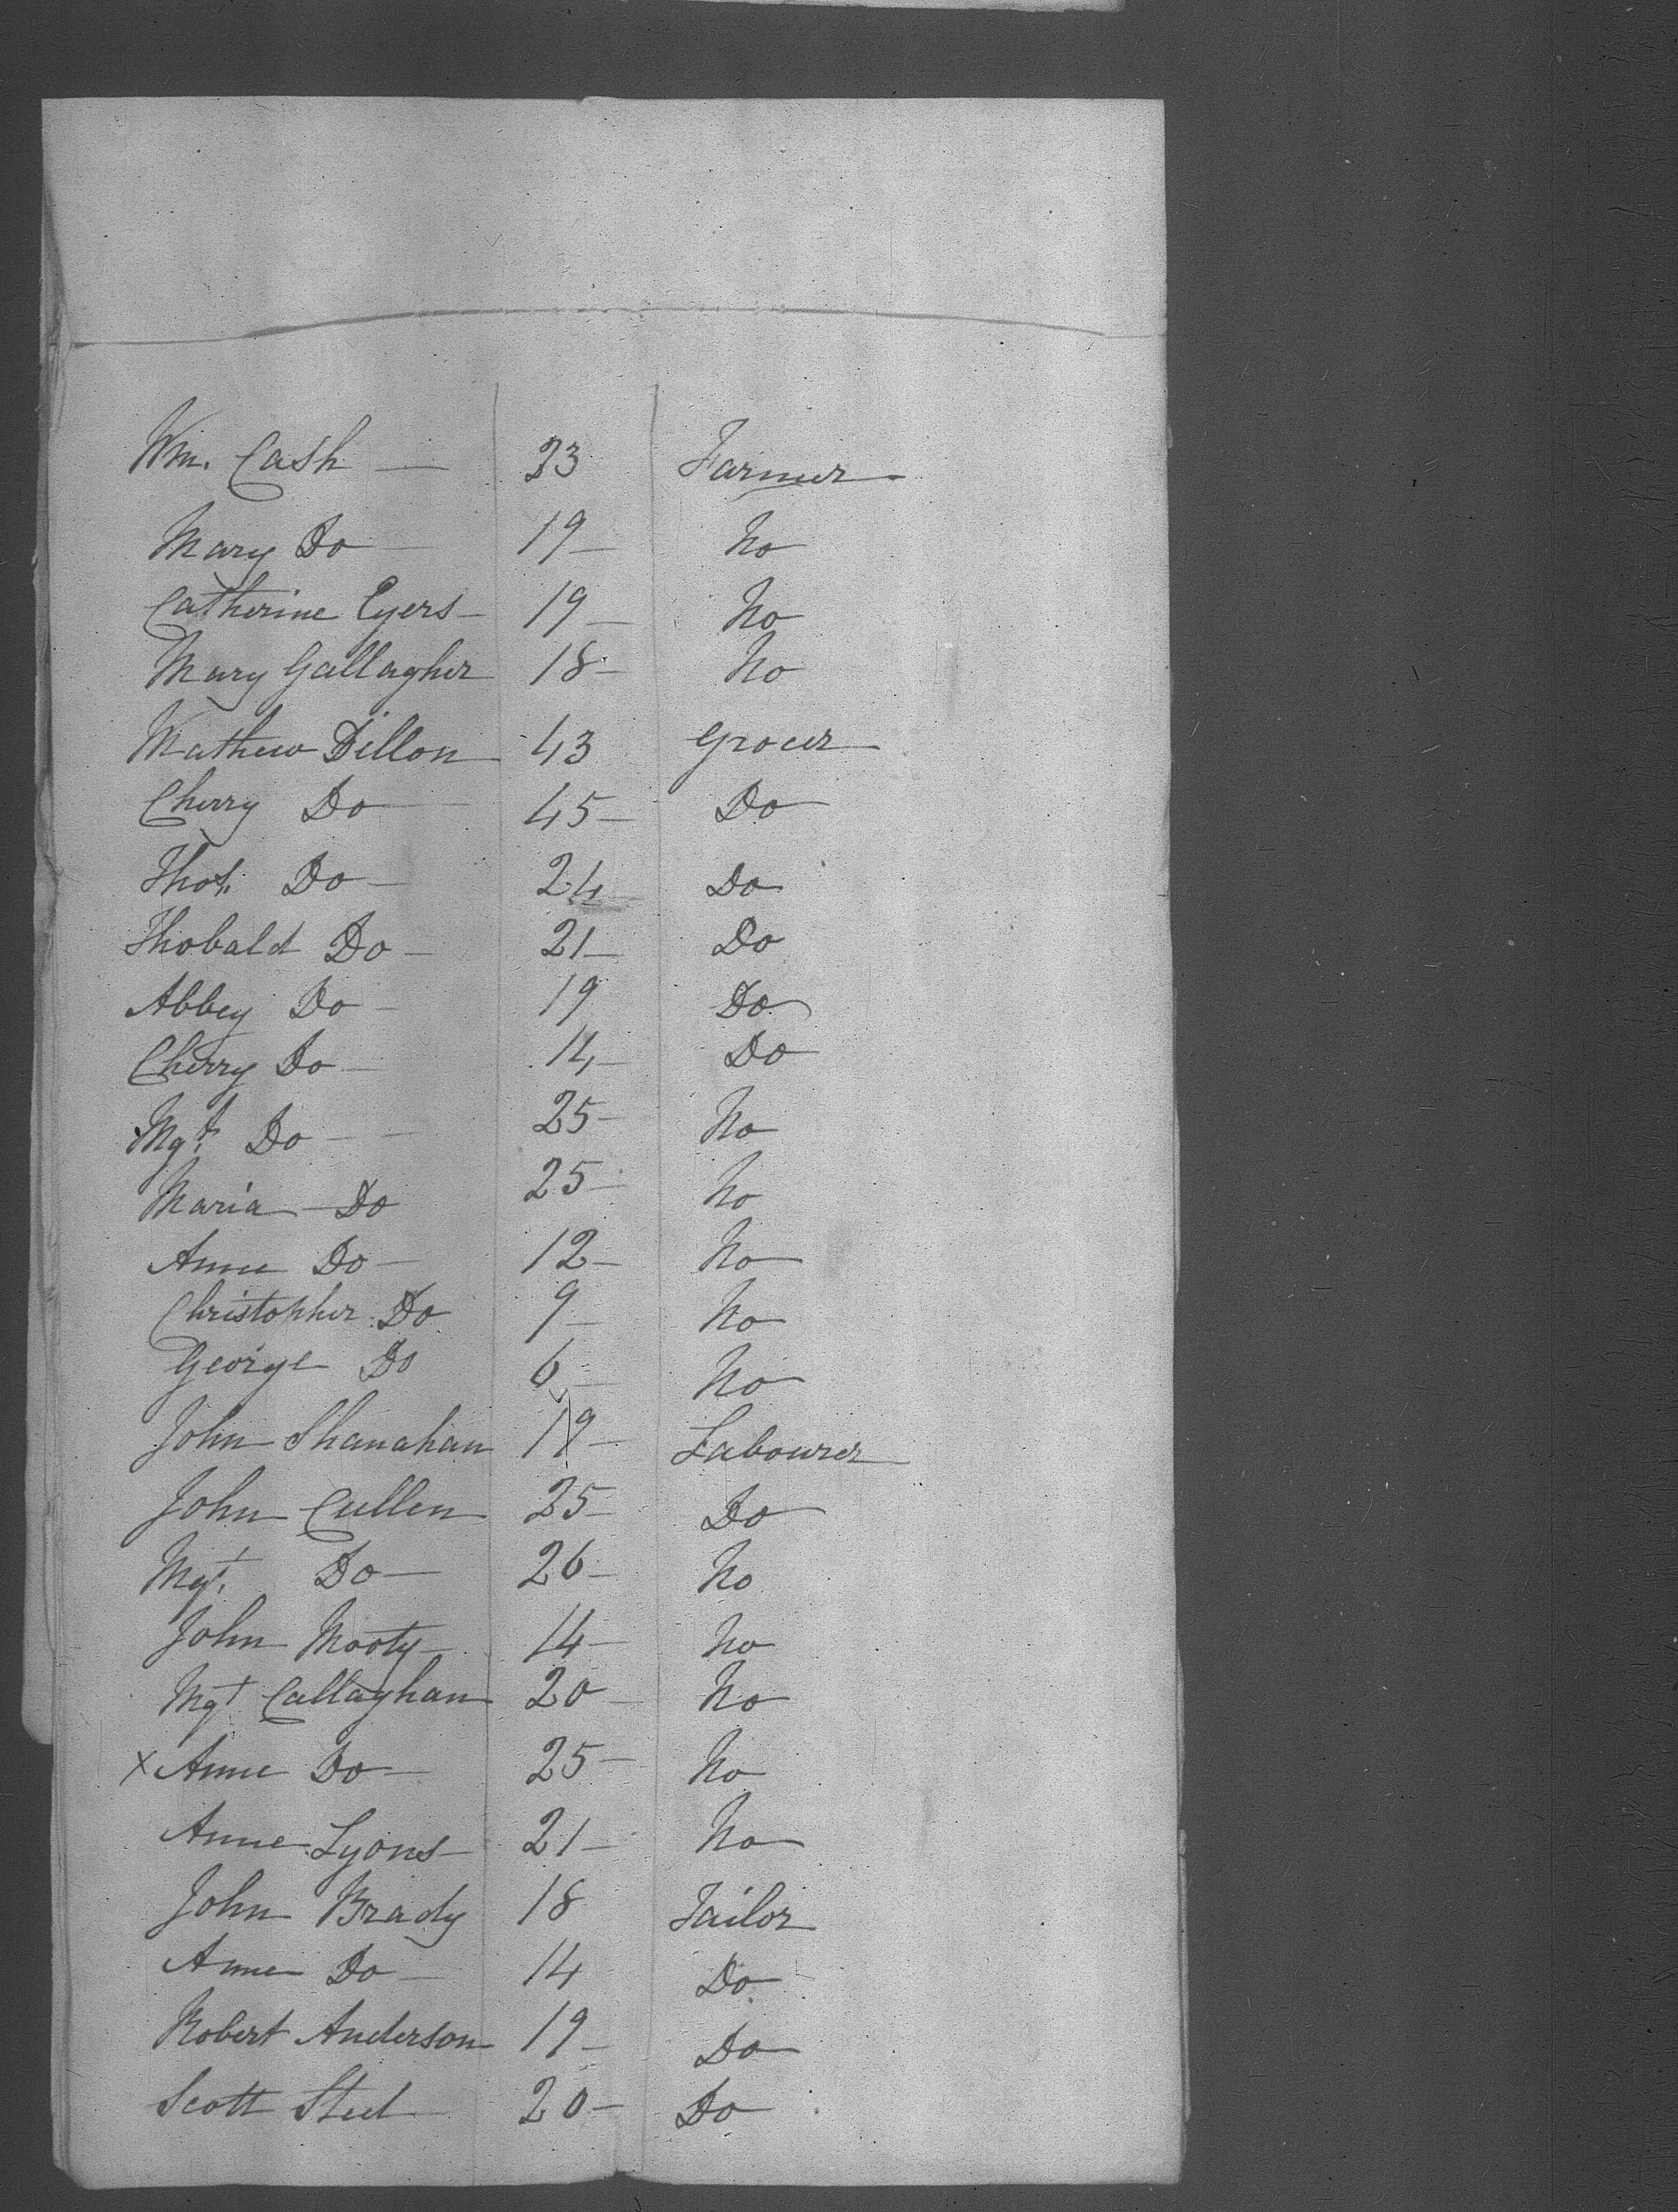 Wm. Cash — 23 Farmer
Mary Do — 19 — No
Catherine Eyers — 19 — No
Mary Gallagher 18 — No
Mathew Dillon 43 Grocer
Cherry Do — 45 — Do
Thos. Do — 24 Do
Thobald Do — 21 — Do
Abbey Do — 19 Do
Cherry Do — 14 — Do
Mgt. Do — 25 — No
Maria — Do 25 — No
Anne Do — 12 — No
Christopher Do 9 — No
George Do 6 — No
John Shanahan 19 — Labourer
John Cullen 25 — Do
Mgt. Do — 26 — No
John Mooty — 14 — No
Mgt Callaghan 20 — No
x Anne Do — 25 — No
Anne Lyons — 21 — No
John Brady 18 Tailor
Anne Do — 14 Do
Robert Anderson 19 — Do
Scott Steel 20 — Do